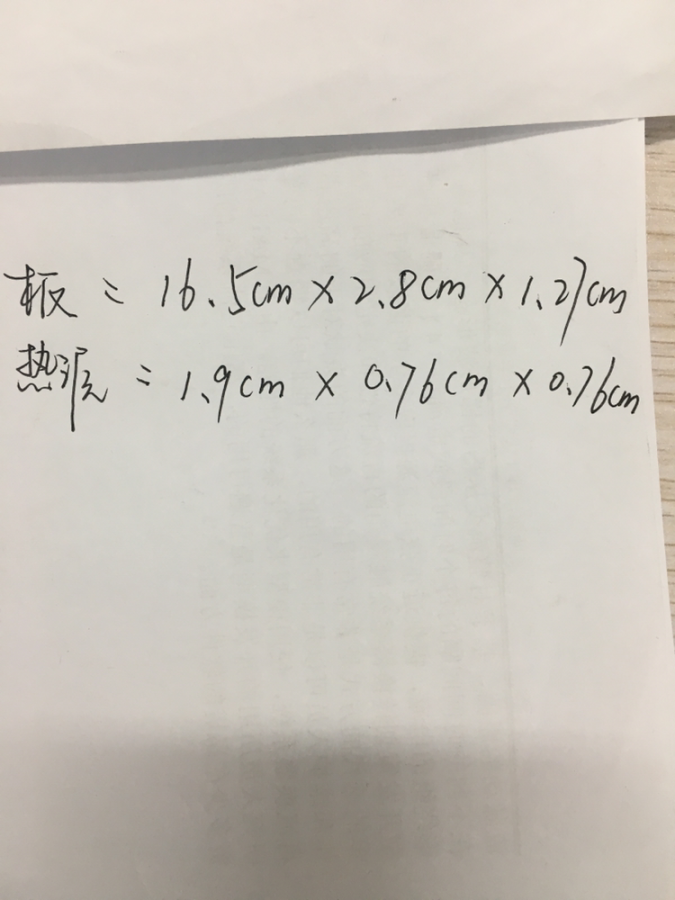 板：16.5cm×2.8cm×1.27cm
热源：1.9cm×0.76cm×0.76cm